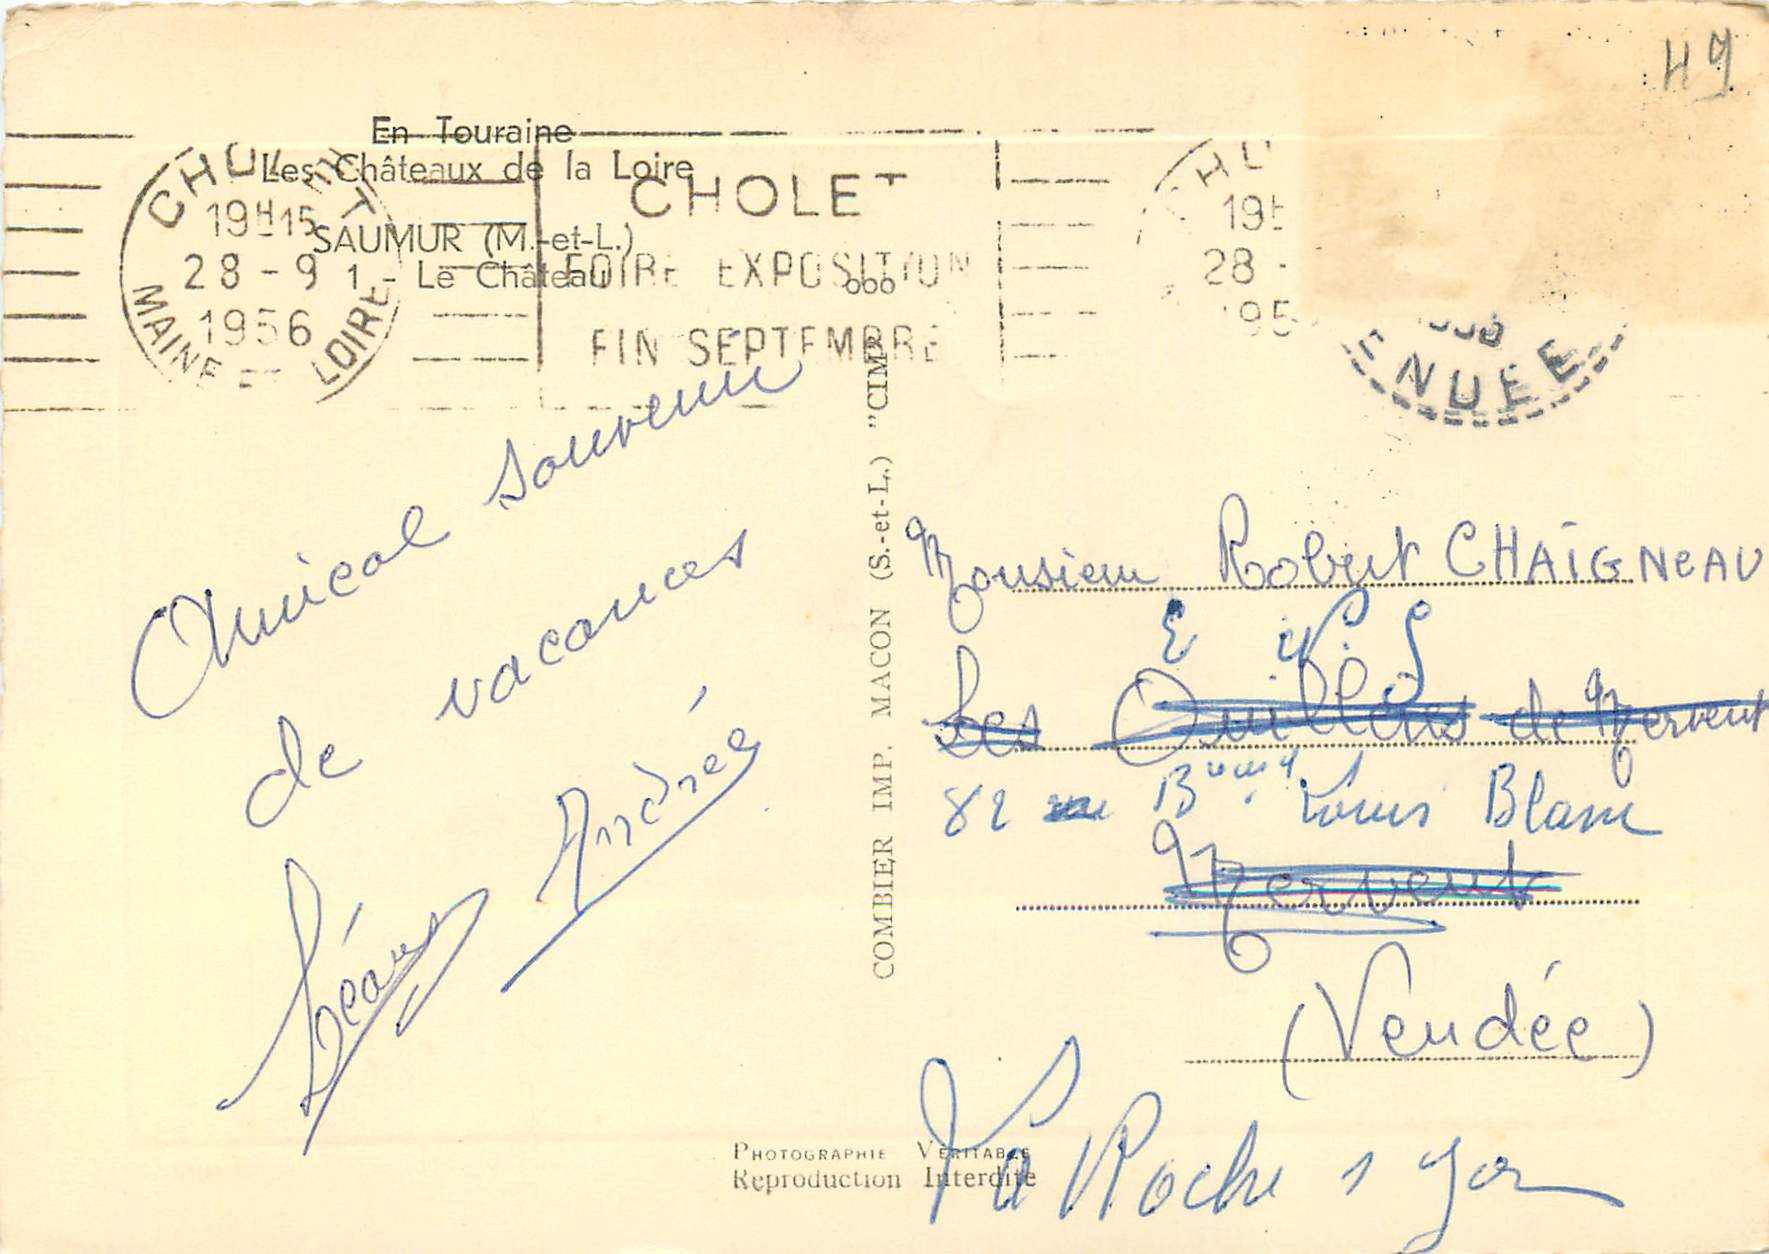 49
En Touraine
Les Châteaux de la Loire
SAUMUR (M.-et-L.)
1 - Le Château
CHOLET
19H15
28-9
1956
MAINE ET LOIRE
CHOLET
FOIRE EXPOSITION
FIN SEPTEMBRE
28 -
NUEE
Amical souvenir
de vacances
Andrée
COMBIER IMP. MACON (S.-et-L.) "CIM"
Monsieur Robert CHAIGNEAU
Les Ouillères de Mervent
82 Louis Blanc
Mervent
(Vendée)
La Roche s Yon
PHOTOGRAPHIE VÉRITABLE
Reproduction Interdite